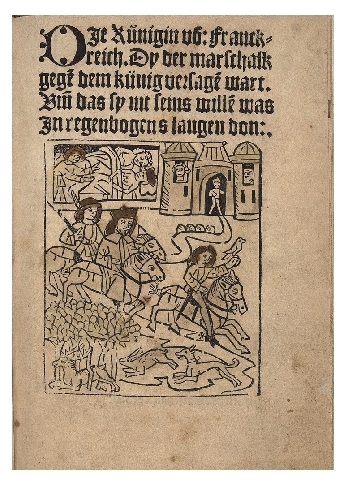 DJe Künigin võ: Franck-
reich. Dy der marschalk
gegē dem künig versagē wart.
Vm̄ das sy nit seins willē was
Jn regenbogens langen don:.